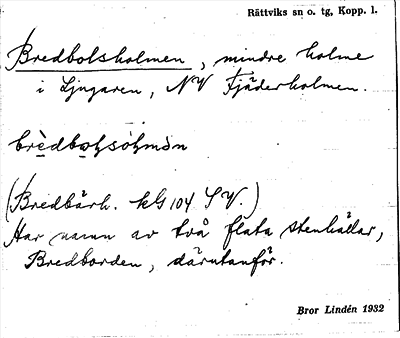 Rättviks sn o. tg, Kopp. l.
Bredbolsholmen, mindre holme
i Ljugaren, NV Fjäderholmen.
(Bredbärh. kG 104 SV.)
Har namn av två flata stenhällar,
Bredborden, därutanför.
Bror Lindén 1932